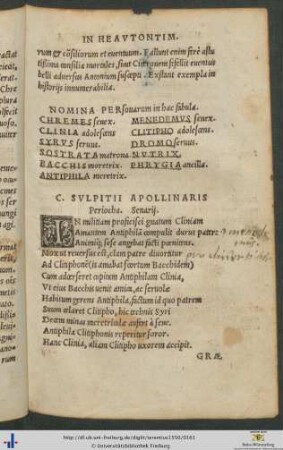 IN HEAVTONTIM.
rum & cõsiliorum et euentuum. Fallunt enim ferè astu
tissima consilia mortales, sicut Ciceronem fefellit euentus
belli aduersus Antonium suscepti. Extant exempla in
historijs innumerabilia.
NOMINA PERsonarum in hac fabula.
CHREMES senex. MENEDEMVS senex.
CLINIA adolescens CLITIPHO adolescens.
SYRVS seruus. DROMO seruus.
SOSTRATA matrona NVTRIX,
BACCHIS meretrix. PHRYGIA ancilla.
ANTIPHILA meretrix.
C. SVLPITII APOLLINARIS
Periocha. Senarij.
IN militiam proficisci gnatum Cliniam
Amantem Antiphilã compulit durus pater:
Animiq; sese angebat facti pœnitens.
Mox ut reuersus est, clam patre diuortitur
Ad Clitiphonẽ (is amabat scortum Bacchidem)
Cum accerseret cupitam Antiphilam Clinia,
Vt eius Bacchis uenit amica, ac seruolæ
Habitum gerens Antiphila, factum id quo patrem
Suum celaret Clitipho, hic technis Syri
Decem minas meretriculæ aufert à sene.
Antiphila Clitiphonis reperitur soror.
Hanc Clinia, aliam Clitipho uxorem accipit.
GRÆ
http://dl.ub.uni-freiburg.de/diglit/terentius1550/0161
© Universitätsbibliothek Freiburg